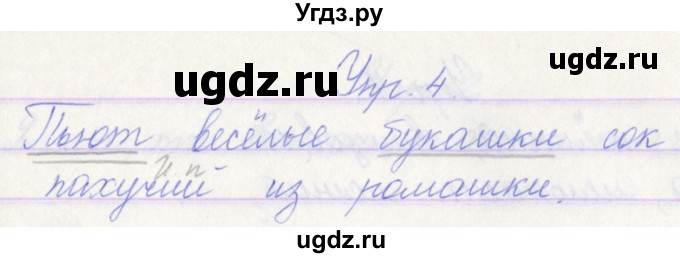 Угдз.ру
Упр. 4.
ugdz.ru
Пьют весёлые букашки сок
И п
пахучий из ромашки.
ugdz.ru